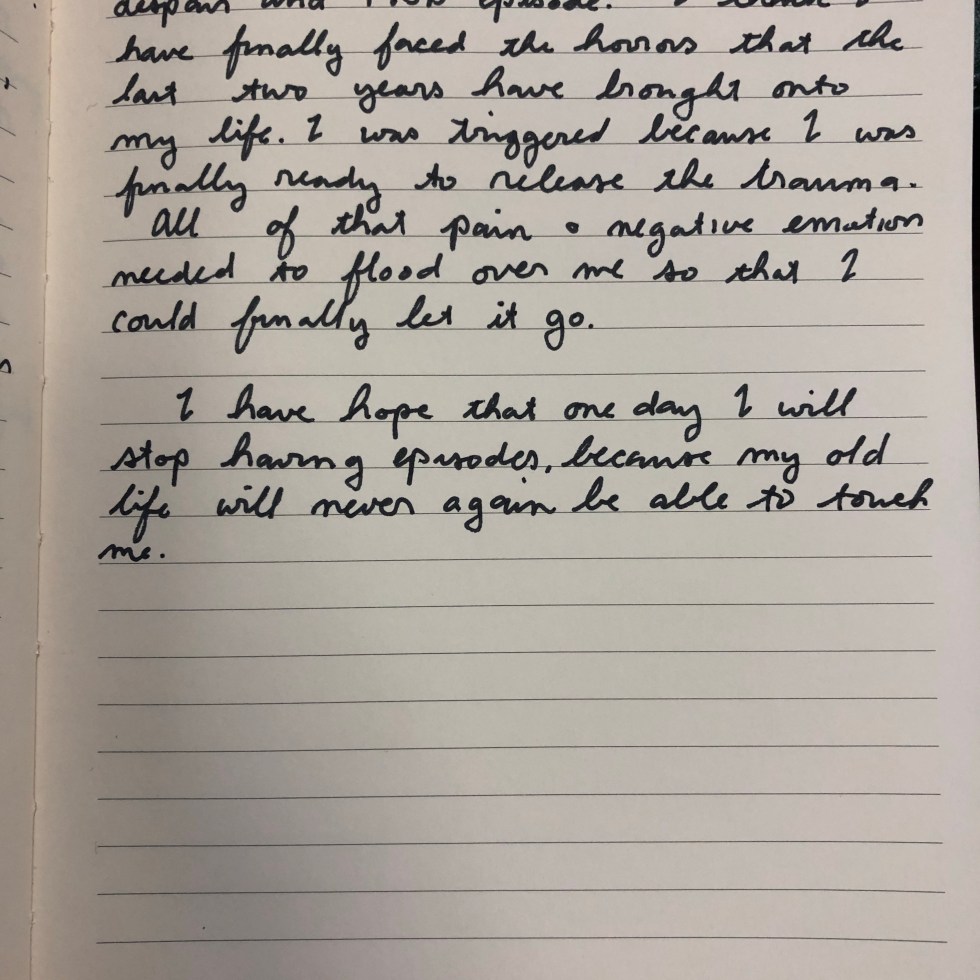 despair and PTSD episode. I think I
have finally faced the horrors that the
last two years have brought onto
my life. I was triggered because I was
finally ready to release the trauma.
All of that pain + negative emotion
needed to flood over me so that I
could finally let it go.
I have hope that one day I will
stop having episodes, because my old
life will never again be able to touch
me.